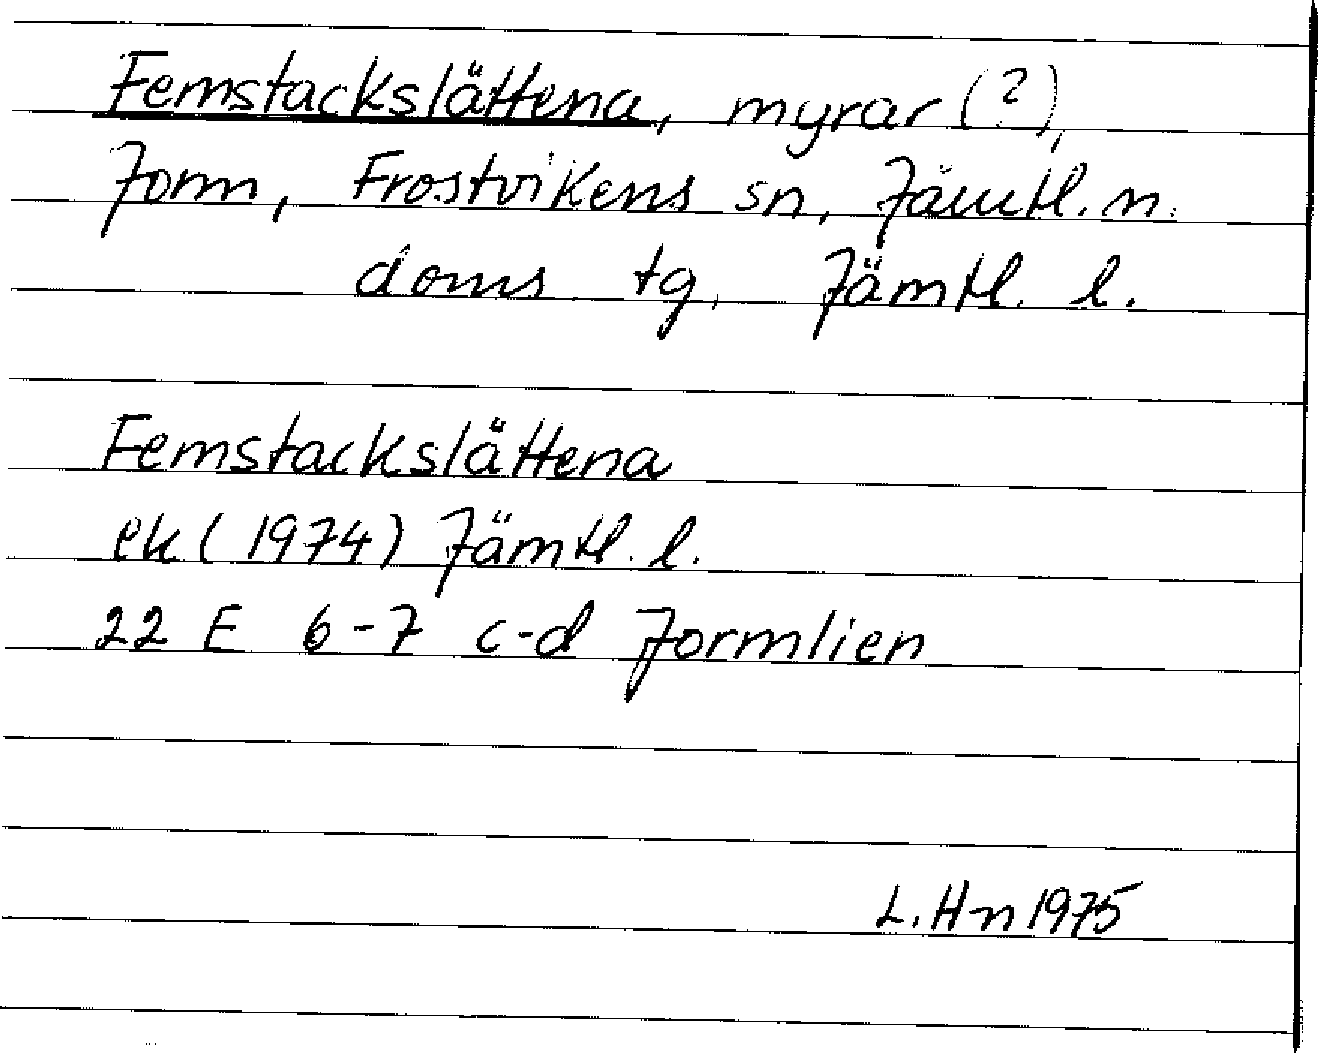 Femstackslättena, myrar (?),
Jorm, Frostvikens sn, Jämtl. n.
doms tg, Jämtl. l.
Femstackslättena
ek (1974) Jämtl. l.
22 E 6-7 c-d Jormlien
L. Hn 1975